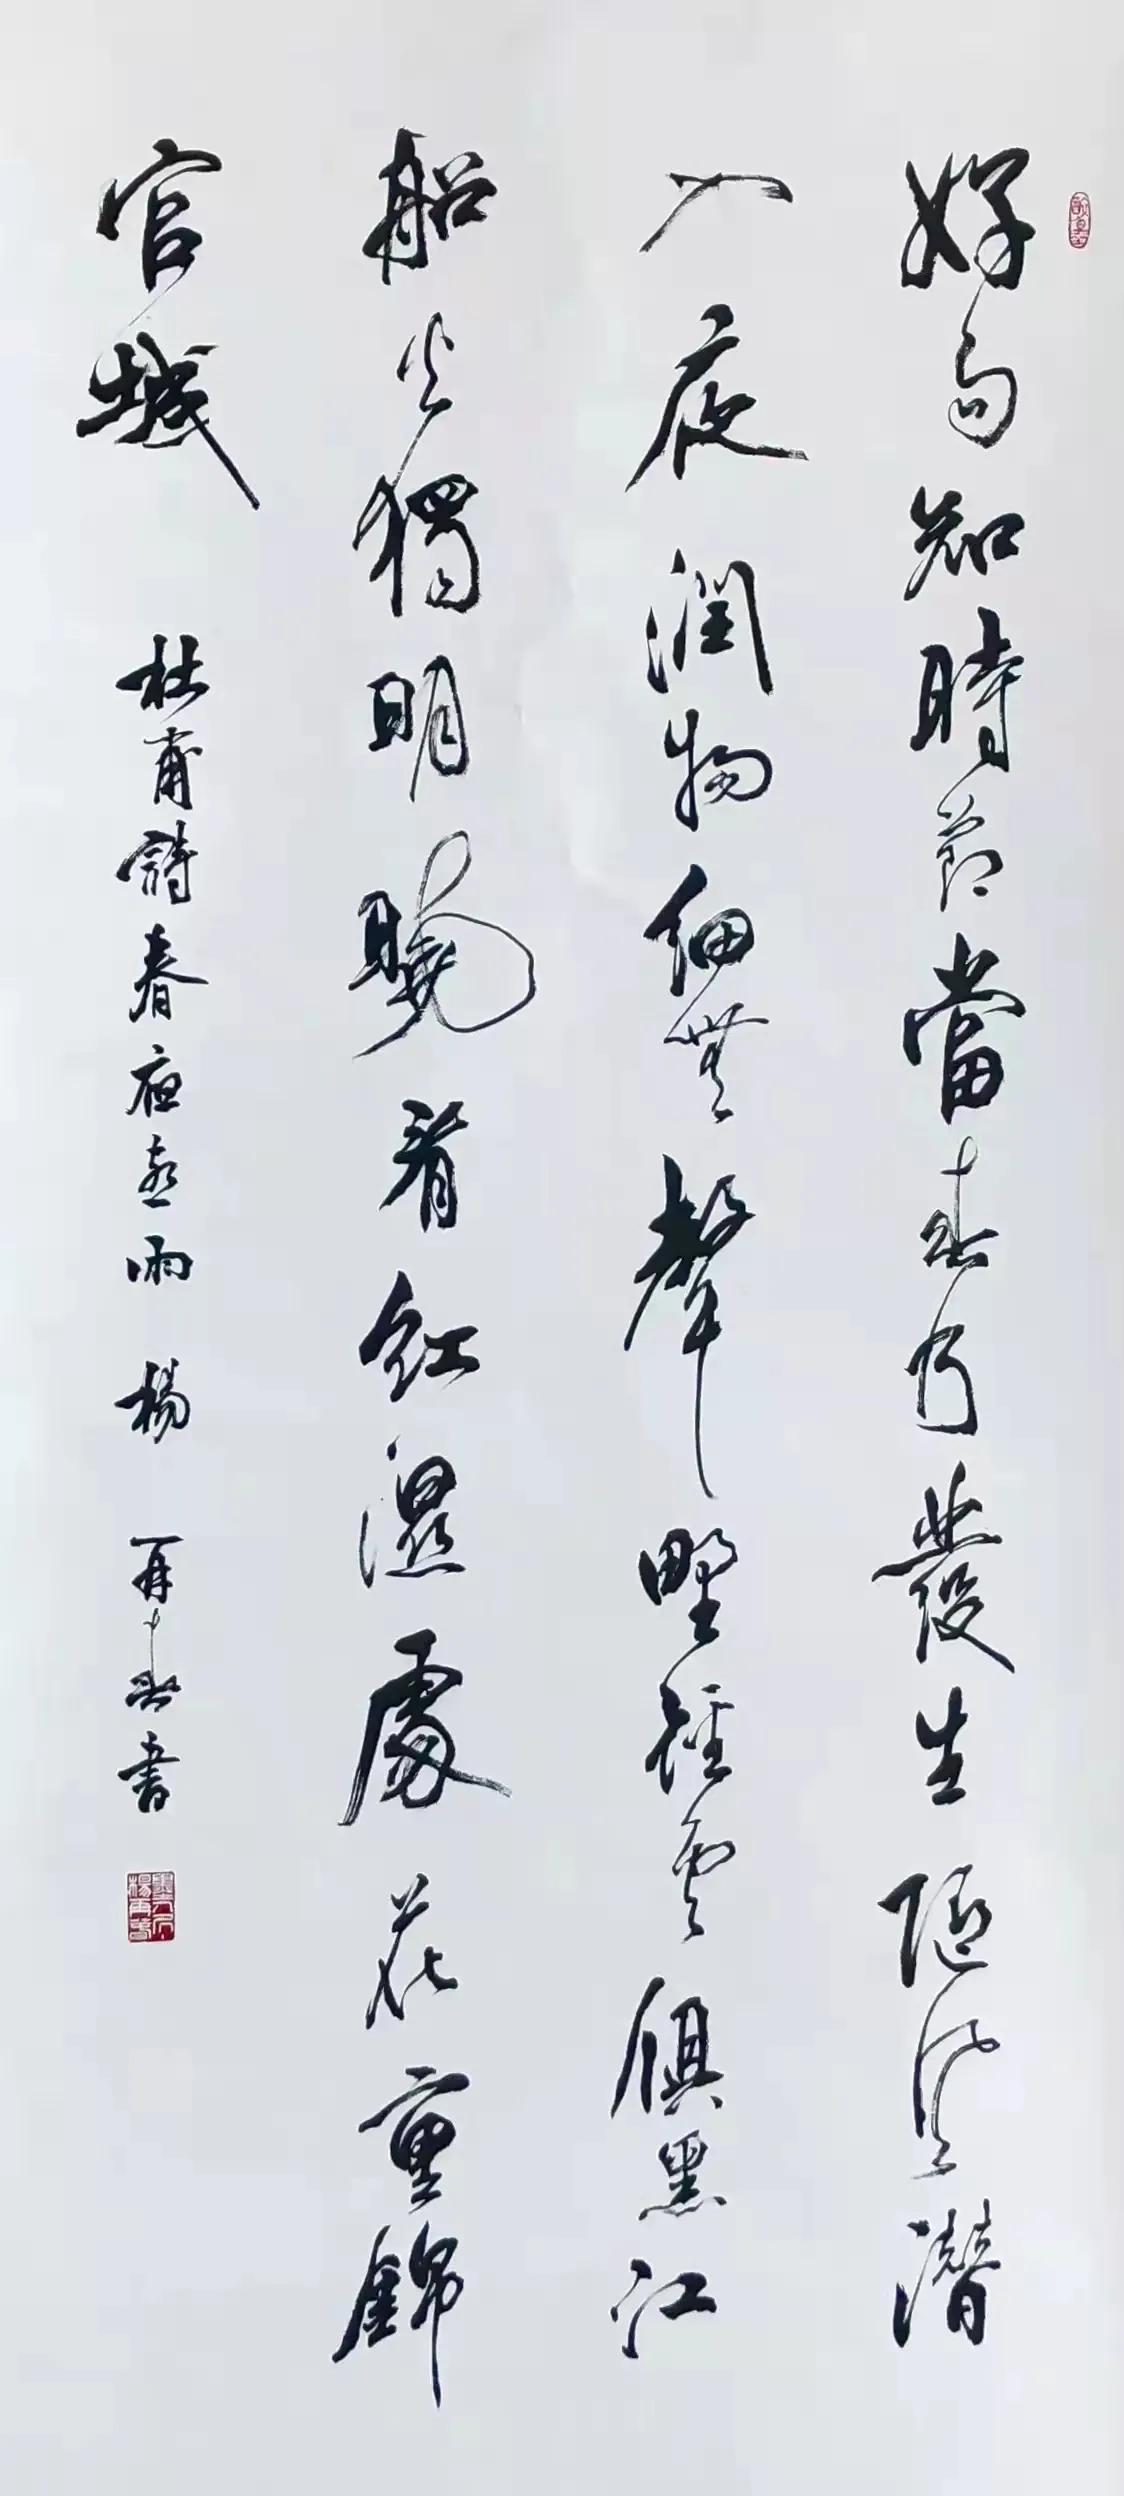 好雨知時節當春乃發生隨風潛
入夜潤物細無聲野徑雲俱黑江
船火獨明曉看紅濕處花重錦
官城 杜甫詩春夜喜雨 楊再春書